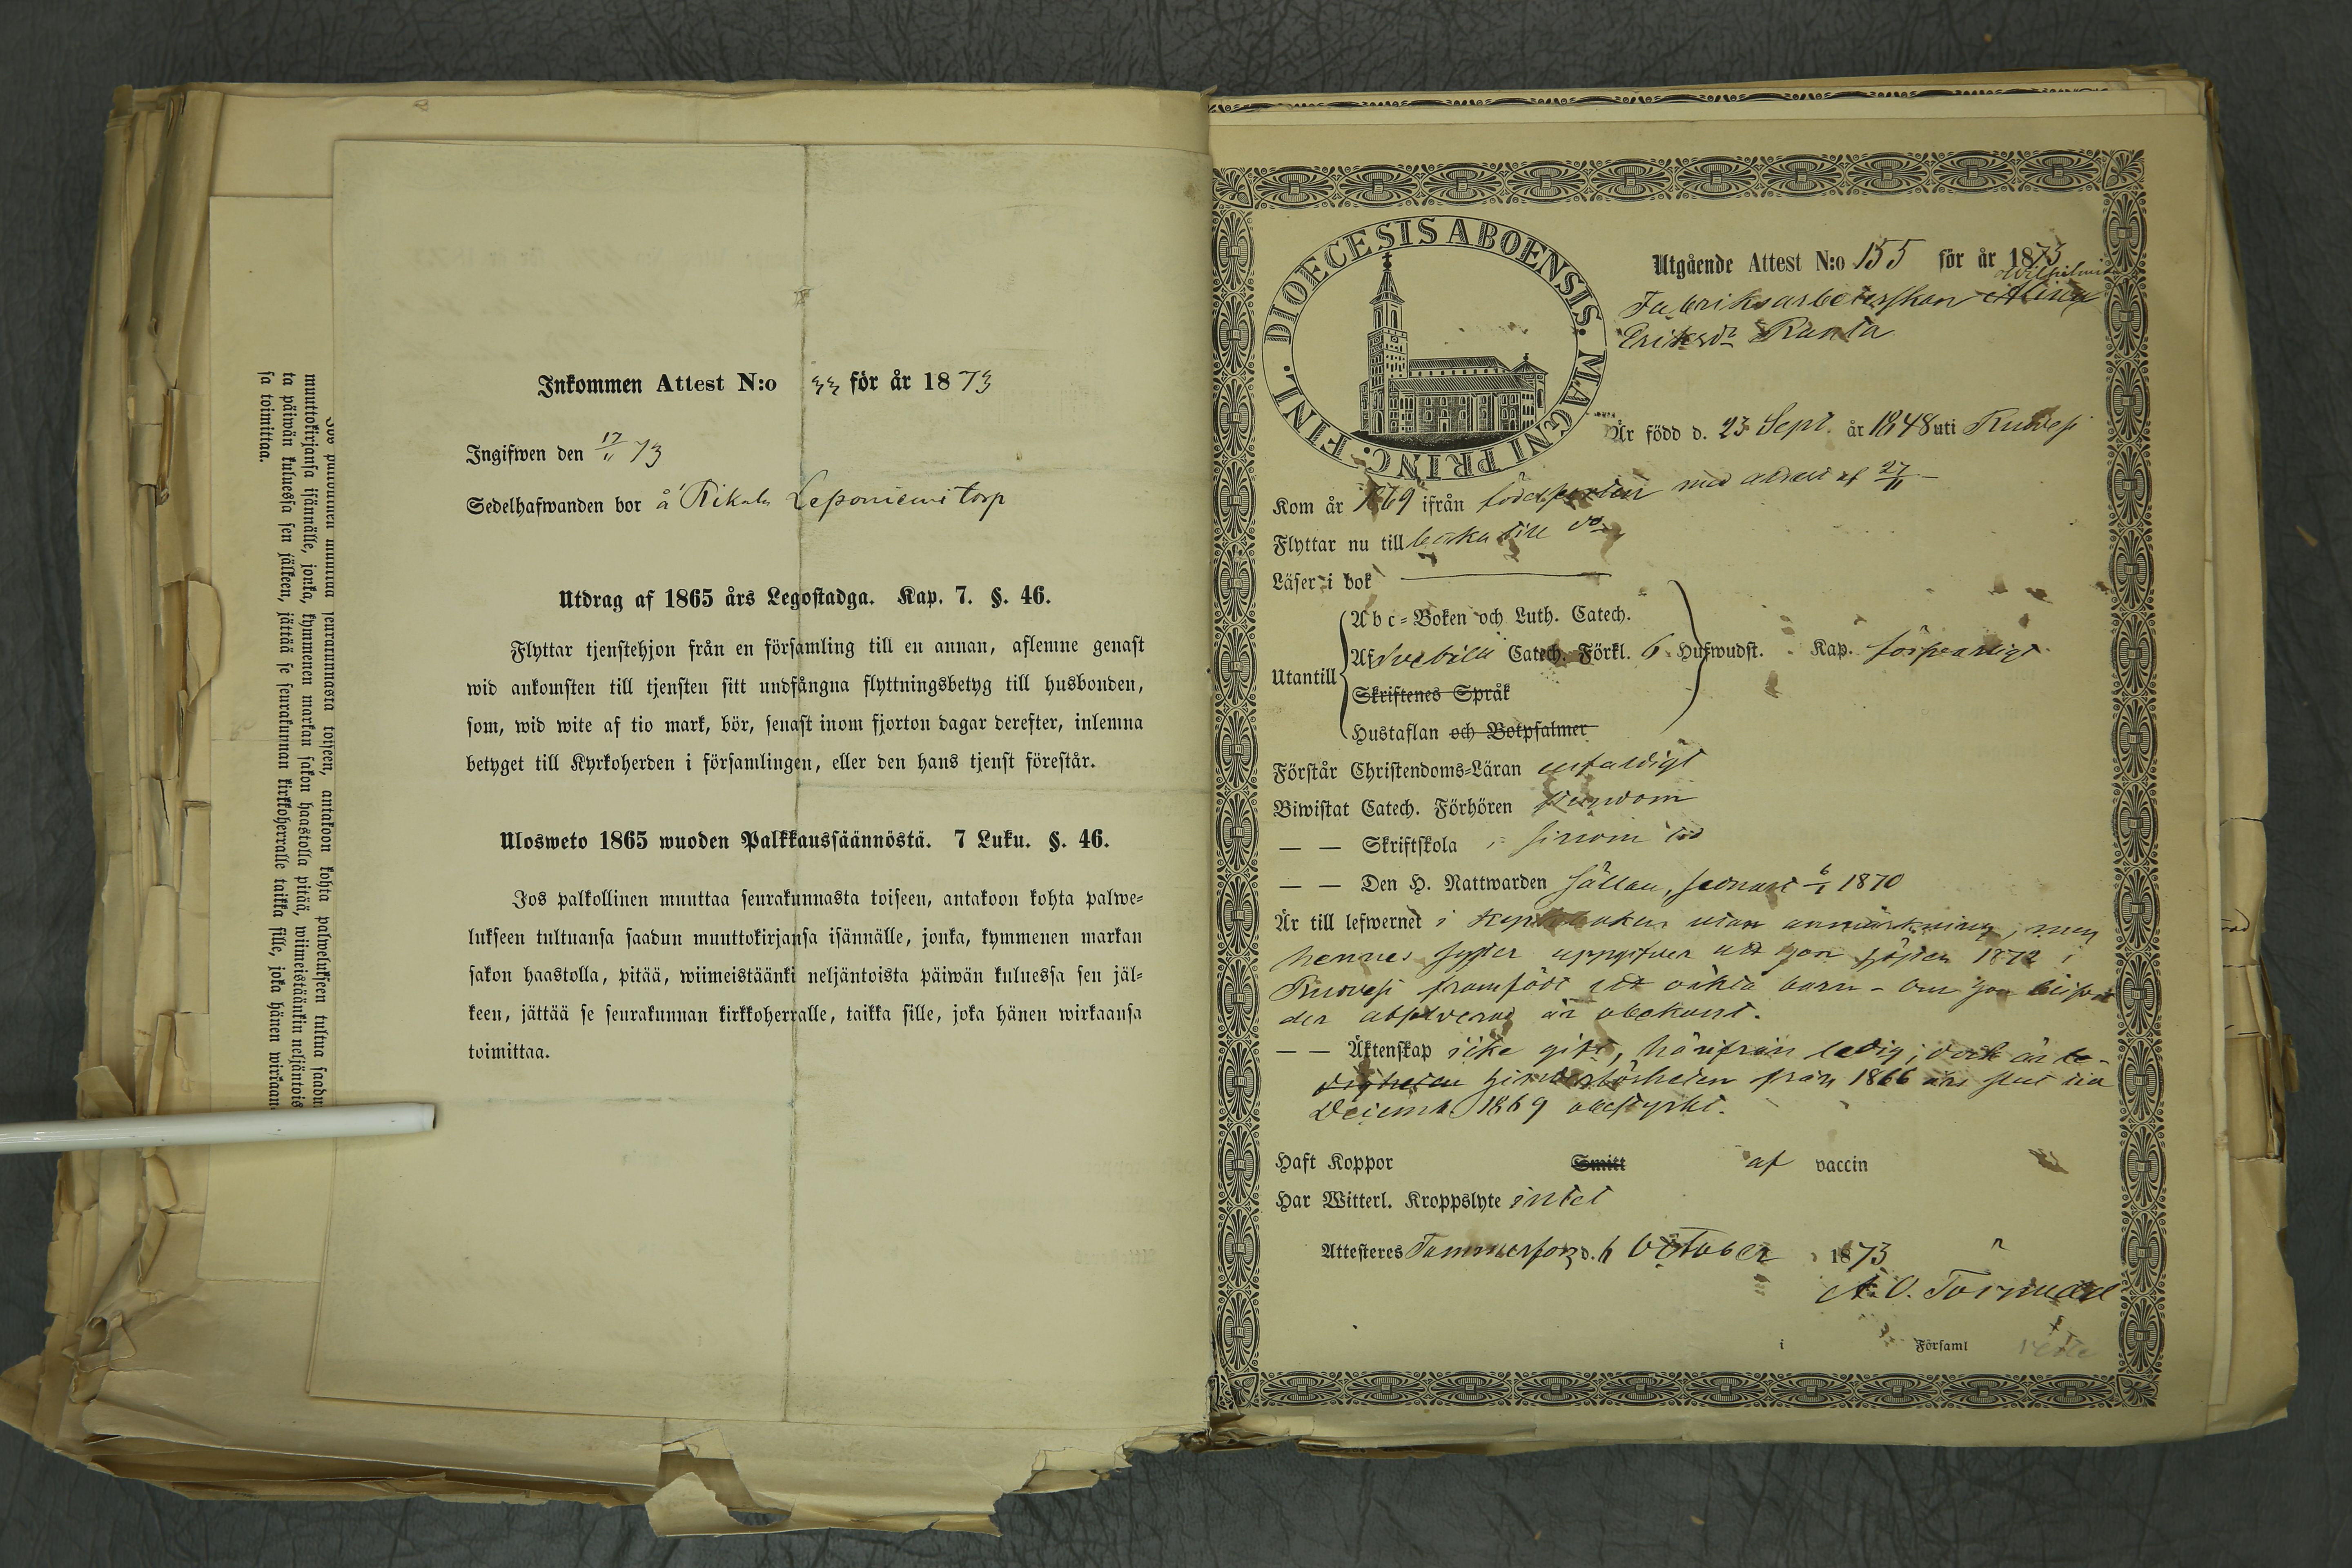 Inkommen Attest N:o 33 för år 1873
Ingifwen den 17/11 73
Sedelhafwanden bor å Rikala Leponiemi torp
Utdrag af 1865 års Legostadga. Kap. 7. §. 46.
Flyttar tjenstehjon från en församling till en annan, aflemne genast
wid ankomsten till tjensten sitt undfångna flyttningsbetyg till husbonden,
som, wid wite af tio mark, bör, senast inom fjorton dagar derefter, inlemna
betyget till Kyrkoherden i församlingen, eller den hans tjenst förestår.
Ulosweto 1865 wuoden Palkkaussäännöstä. 7 Luku. §. 46.
Jos palkollinen muuttaa seurakunnasta toiseen, antakoon kohta palwe-
lukseen tultuansa saadun muuttokirjansa isännälle, jonka, kymmenen markan
sakon haastolla, pitää, wiimeistäänki neljäntoista päiwän kuluessa sen jäl-
keen, jättää se seurakunnan kirkkoherralle, taikka sille, joka hänen wirkaansa
toimittaa.
seurakunnasta toiseen, antakoon kohta palwelukseen tultua
muuttokirjansa isännälle, jonka, kymmenen markan sakon haastolla pitää, wiimeistäänkin neljäntois
ta päiwän kuluessa sen jälkeen, jättää se seurakunnan kirkkoherralle taikka sille, joka hänen
sa toimittaa.
DIOECESIS ABOENSIS. MAGNI PRINC. FINL.
Utgående Attest N:o 155 för år 1873
Fabriksarbeterskan Alina
Eriksdr Ranta
Är född d. 23 Sept. år 1848 uti Ruovesi
Kom år 1869 ifrån födelseorten med attest af 27/11
Flyttar nu till baka till do
Läser i bok
Utantill
Abc-Boken och Luth. Catech.
Af Svebilii Catech. Förkl. 6 Hufwudst. Kap. försvarligt
Skriftenes Språk
Hustaflan och Botpsalmer
Förstår Christendoms-Läran enfaldigt
Biwistat Catech. Förhören
— — Skriftskola i sinom tid
— — Den H. Nattwarden sällan, senast 6/1 1870
Är till lefwernet i kyrkoboken utan anmärkning, men
hennes syster uppgifver att hon hösten 1872 i
Ruovesi framfödt ett oäkta barn - om hon blifvit
der absolverad är obekant.
— — Äktenskap icke gift, härifrån ledig; dock är
hinderlösheten från 1866 års slut till
Decemb. 1869 obestyrkt.
Haft Koppor Smitt af vaccin
Har Witterl. Kroppslyte intet
Attesteres Tammerfors d. 6 October 1873
A. O. Törnudd
i Församl